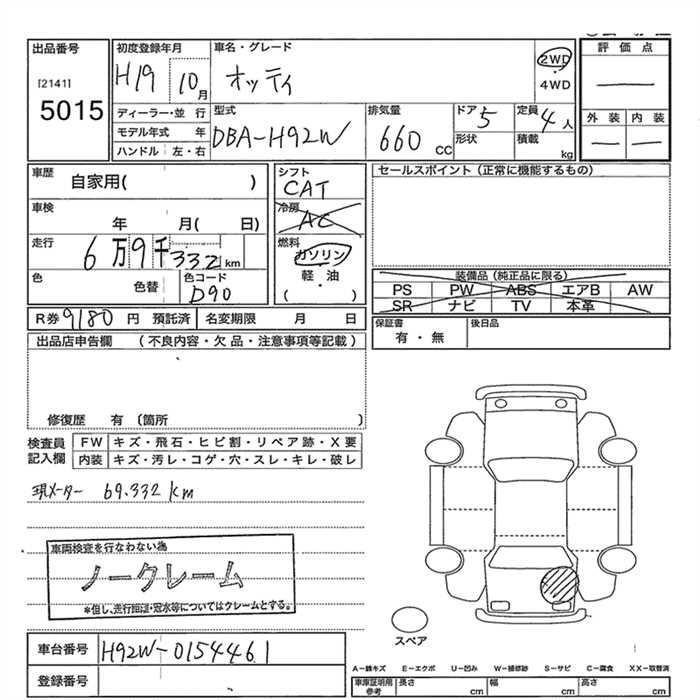 出品番号
[2141]
5015
初度登録年月
H19 10月
車名・グレード
オッティ
2WD
4WD
評価点
—
外装 内装
— —
ディーラー・並行
モデル年式 年
ハンドル 左・右
型式
DBA-H92W
排気量
660 CC
ドア 5
形状
定員 4人
積載 kg
車歴 自家用( )
車検 年 月( 日)
走行 6万9千332km
色 色替
色コード D90
シフト
CAT
冷房
AC
燃料
ガソリン
軽・油
( )
セールスポイント (正常に機能するもの)
装備品 (純正品に限る)
PS PW ABS エアB AW
SR ナビ TV 本革
R券 9180 円 預託済 名変期限 月 日
保証書
有・無
後日品
出品店申告欄 (不良内容・欠品・注意事項等記載)
修復歴 有 (箇所 )
検査員
記入欄
FW キズ・飛石・ヒビ割・リペア跡・X要
内装 キズ・汚レ・コゲ・穴・スレ・キレ・破レ
現メーター 69.332 km
車両検査を行なわない為
ノークレーム
*但し、走行距離・冠水等についてはクレームとする。
スペア
車台番号 H92W-0154461
登録番号
A-線キズ E-エクボ U-凹み W-補修跡 S-サビ C-腐食 XX-取替済
車庫証明用
参考
長さ cm 幅 cm 高さ cm